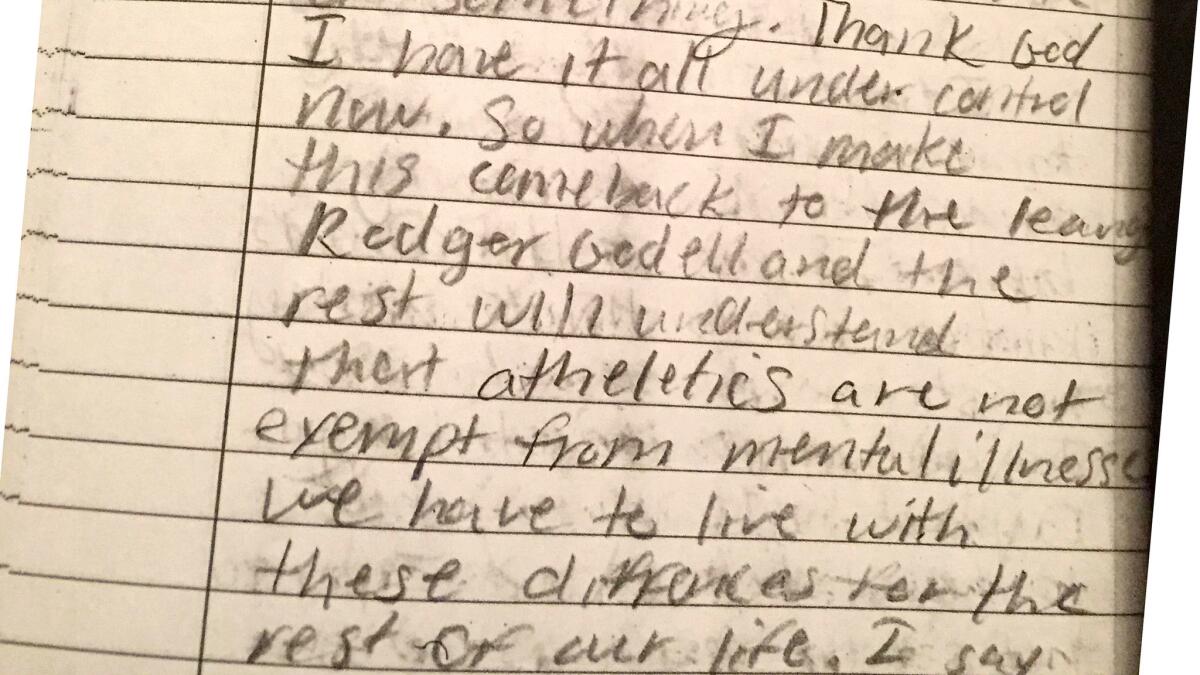 something. Thank God
I have it all under control
now. So when I make
this comeback to the leaug
Rodger Godell and the
rest will understand
that atheletics are not
exempt from mental illnesse
we have to live with
these diffrences for the
rest of our life. I say